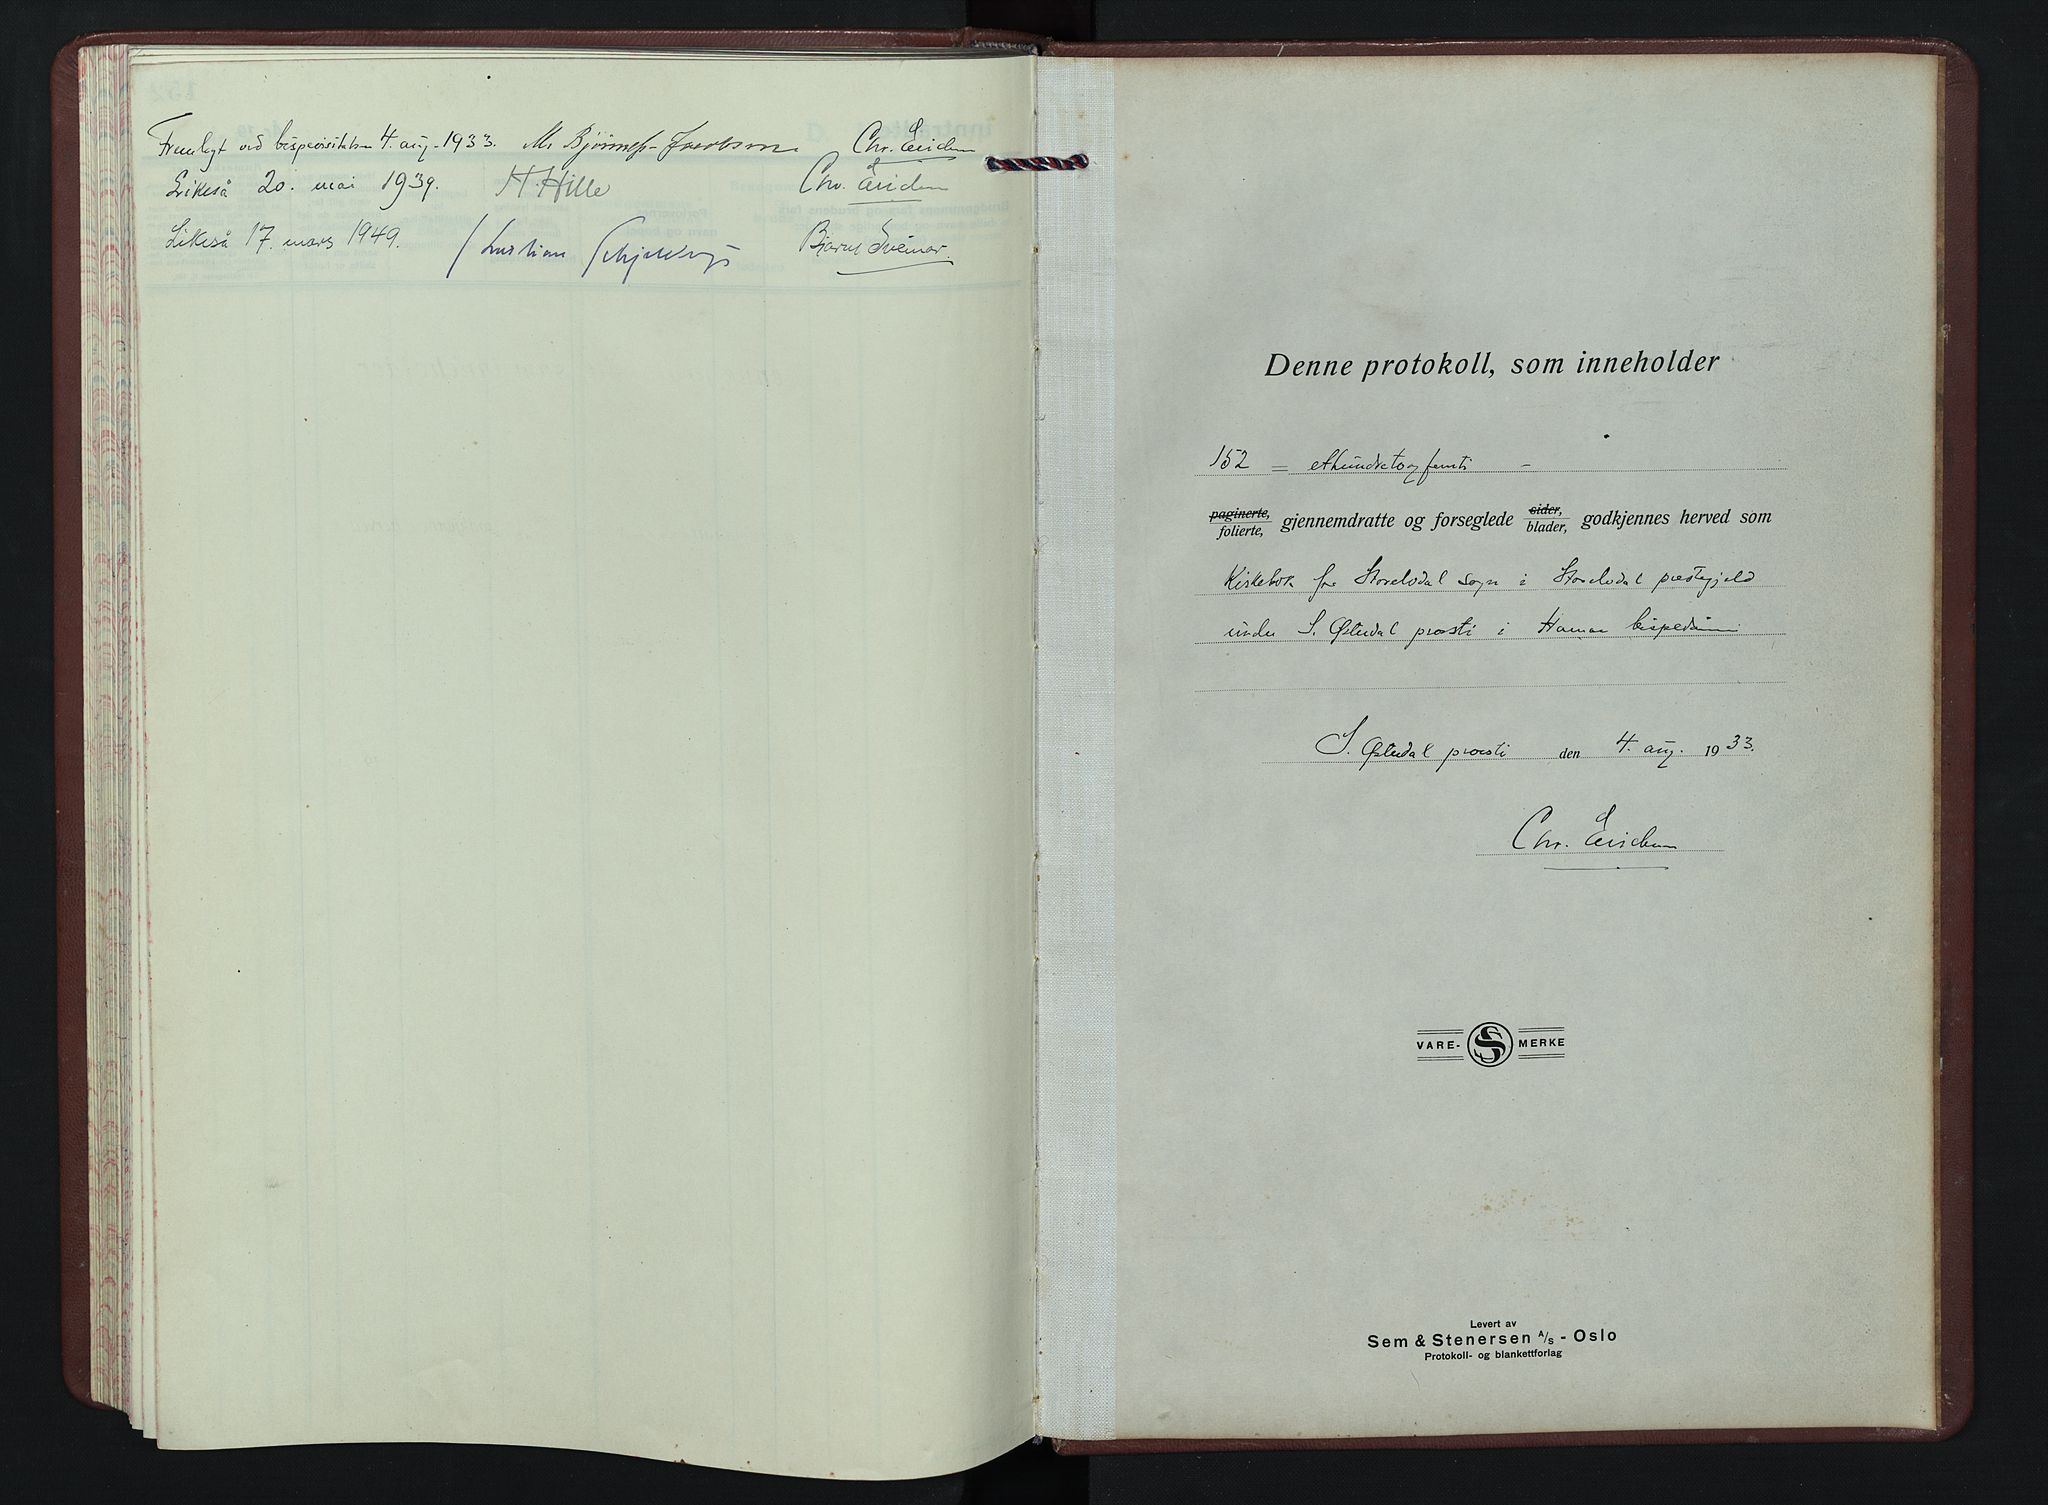 Fremlagt ved bispevisitatsen 4. aug. 1933. M. Bjønness-Jacobsen Chr. Erichsen
Likeså 20. mai 1939. H. Hille Chr. Erichsen
Likeså 17. mars 1949. Kristian Schjelderup Bjarne Sveinar.
Denne protokoll, som inneholder
152 = ethundretogfemti -
paginerte,
folierte, gjennemdratte og forseglede sider,
blader, godkjennes herved som
Kirkebok for Storelvdal sogn i Storelvdal prestegjeld
under S. Østerdal prosti i Hamar bispedømme
S. Østerdal prosti den 4. aug. 1933.
Chr. Erichsen
VARE- S MERKE
Levert av
Sem & Stenersen A/S - Oslo
Protokoll- og blankettforlag